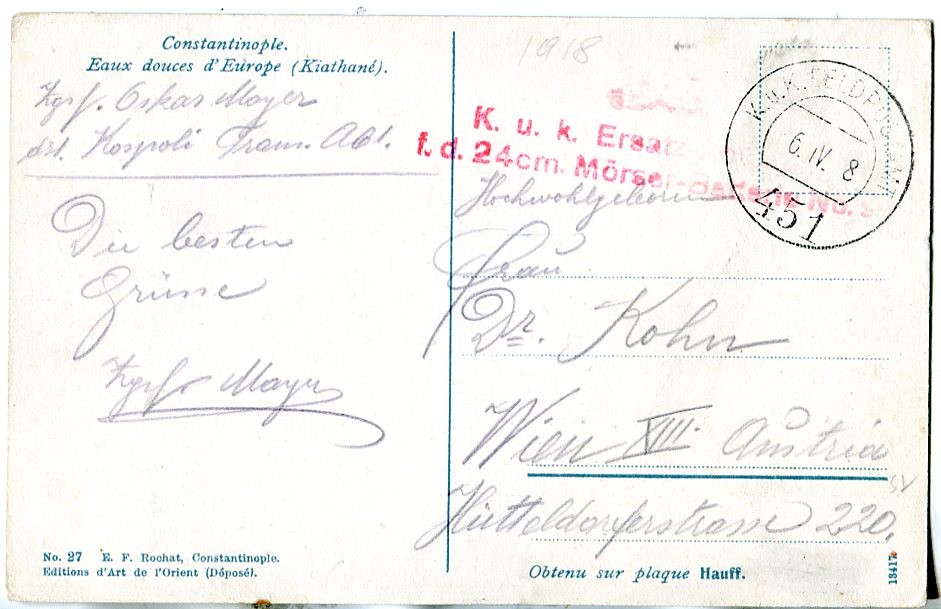 Constantinople.
Eaux douces d'Europe (Kiathané).
Zgsf. Oskar Mayer
Kospoli Tram. Abt.
Die besten
Grüsse
Zgsf Mayer
No. 27 E. F. Rochat, Constantinople.
Editions d'Art de l'Orient (Déposé).
1918
K. u. k. Ersatz
f. d. 24cm. Mörser-Batterie No. 9
K.u.K. FELDPOSTAMT
6. IV. 8
451
Hochwohlgeboren
Frau
Dr. Kohn
Wien XIII. Austria
Hütteldorferstrasse 220.
Obtenu sur plaque Hauff.
13417